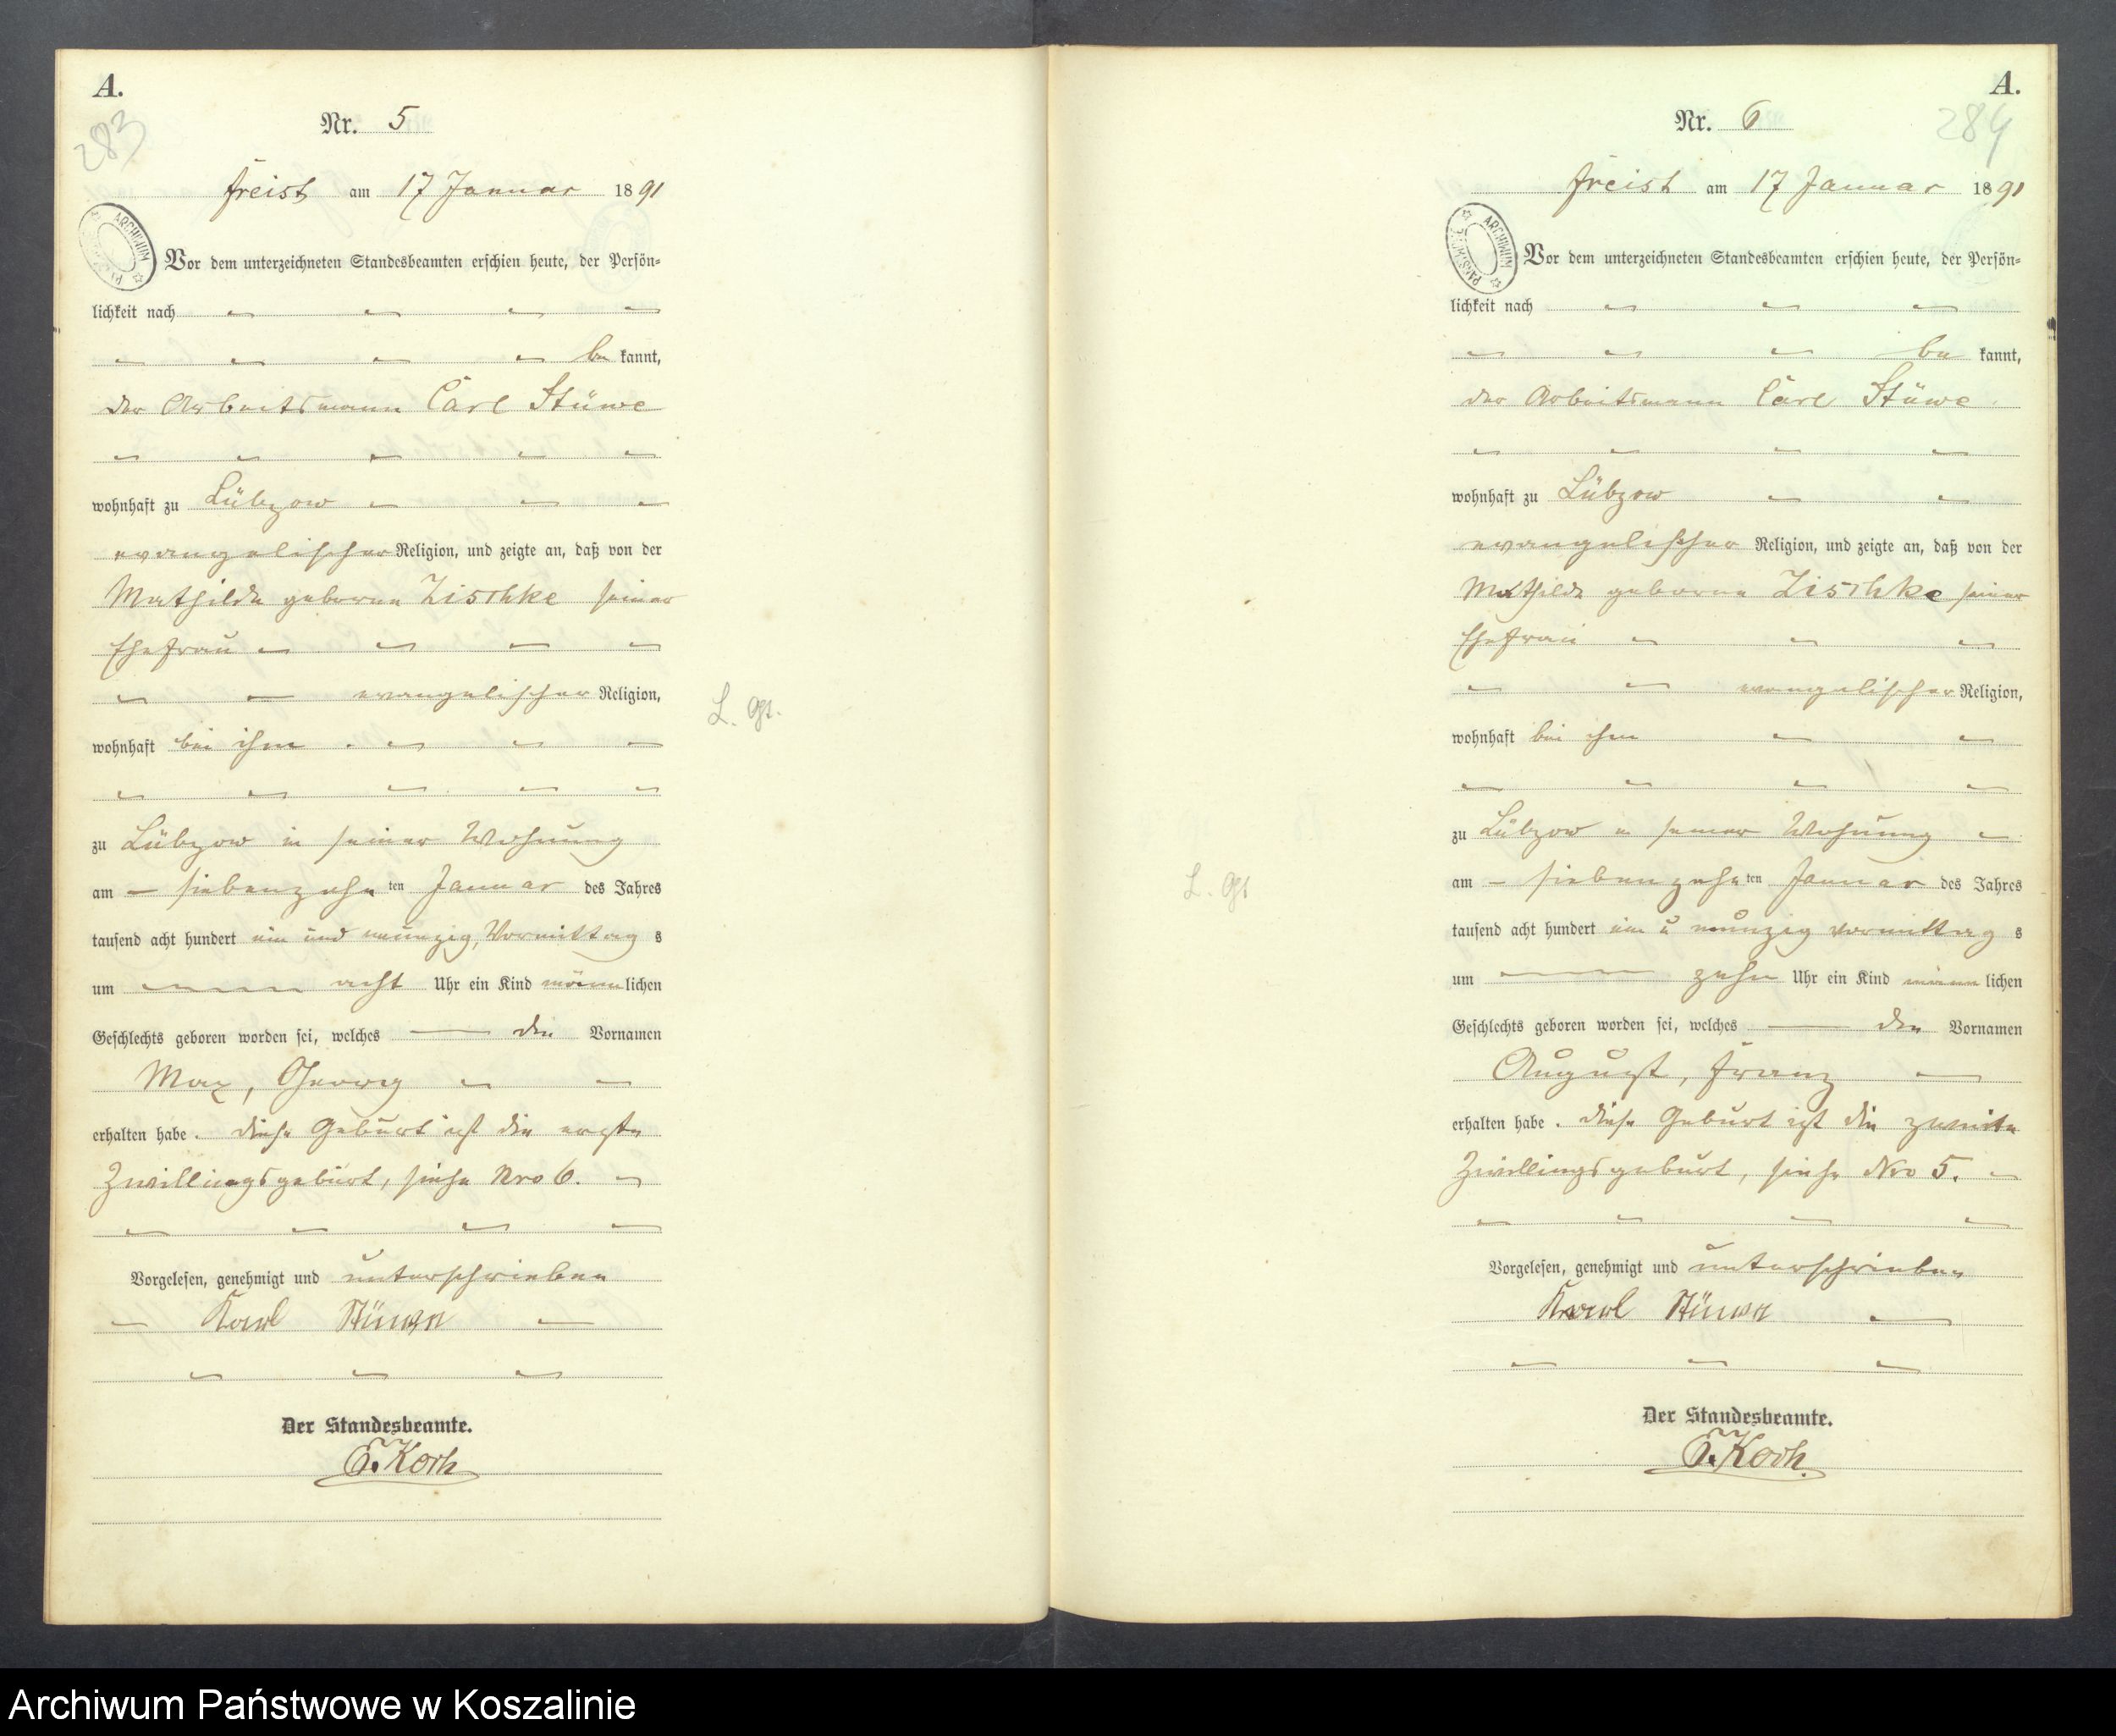 A.
283
Nr. 5
Freist am 17 Januar 1891
ARCHIWUM
Vor dem unterzeichneten Standesbeamten erschien heute, der Persön=
lichkeit nach
be kannt,
der Arbeitsmann Carl Stüwe
wohnhaft zu Lübzow
evangelischer Religion, und zeigte an, daß von der
Mathilde geborne Zischke seiner
Ehefrau
evangelischer Religion,
wohnhaft bei ihm
zu Lübzow in seiner Wohnung
am siebenzehn ten Januar des Jahres
tausend acht hundert ein und neunzig, Vormittag s
um acht Uhr ein Kind männ lichen
Geschlechts geboren worden sei, welches den Vornamen
Max, Georg
erhalten habe. diese Geburt ist die erste
Zwillingsgeburt, siehe Nro 6.
Vorgelesen, genehmigt und unterschrieben
Karl Stüwe
Der Standesbeamte.
E. Koch
L. Gt.
A.
284
Nr. 6
Freist am 17 Januar 1891
ARCHIWUM
Vor dem unterzeichneten Standesbeamten erschien heute, der Persön=
lichkeit nach
be kannt,
der Arbeitsmann Carl Stüwe
wohnhaft zu Lübzow
evangelischer Religion, und zeigte an, daß von der
Mathilde geborne Zischke seiner
Ehefrau
evangelischer Religion,
wohnhaft bei ihm
zu Lübzow in seiner Wohnung
am siebenzehn ten Januar des Jahres
tausend acht hundert ein u neunzig vormittag s
um zehn Uhr ein Kind männ lichen
Geschlechts geboren worden sei, welches den Vornamen
August, Franz
erhalten habe. diese Geburt ist die zweite
Zwillingsgeburt, siehe Nro 5.
Vorgelesen, genehmigt und unterschrieben
Karl Stüwe
Der Standesbeamte.
E. Koch.
L. Gt
Archiwum Państwowe w Koszalinie